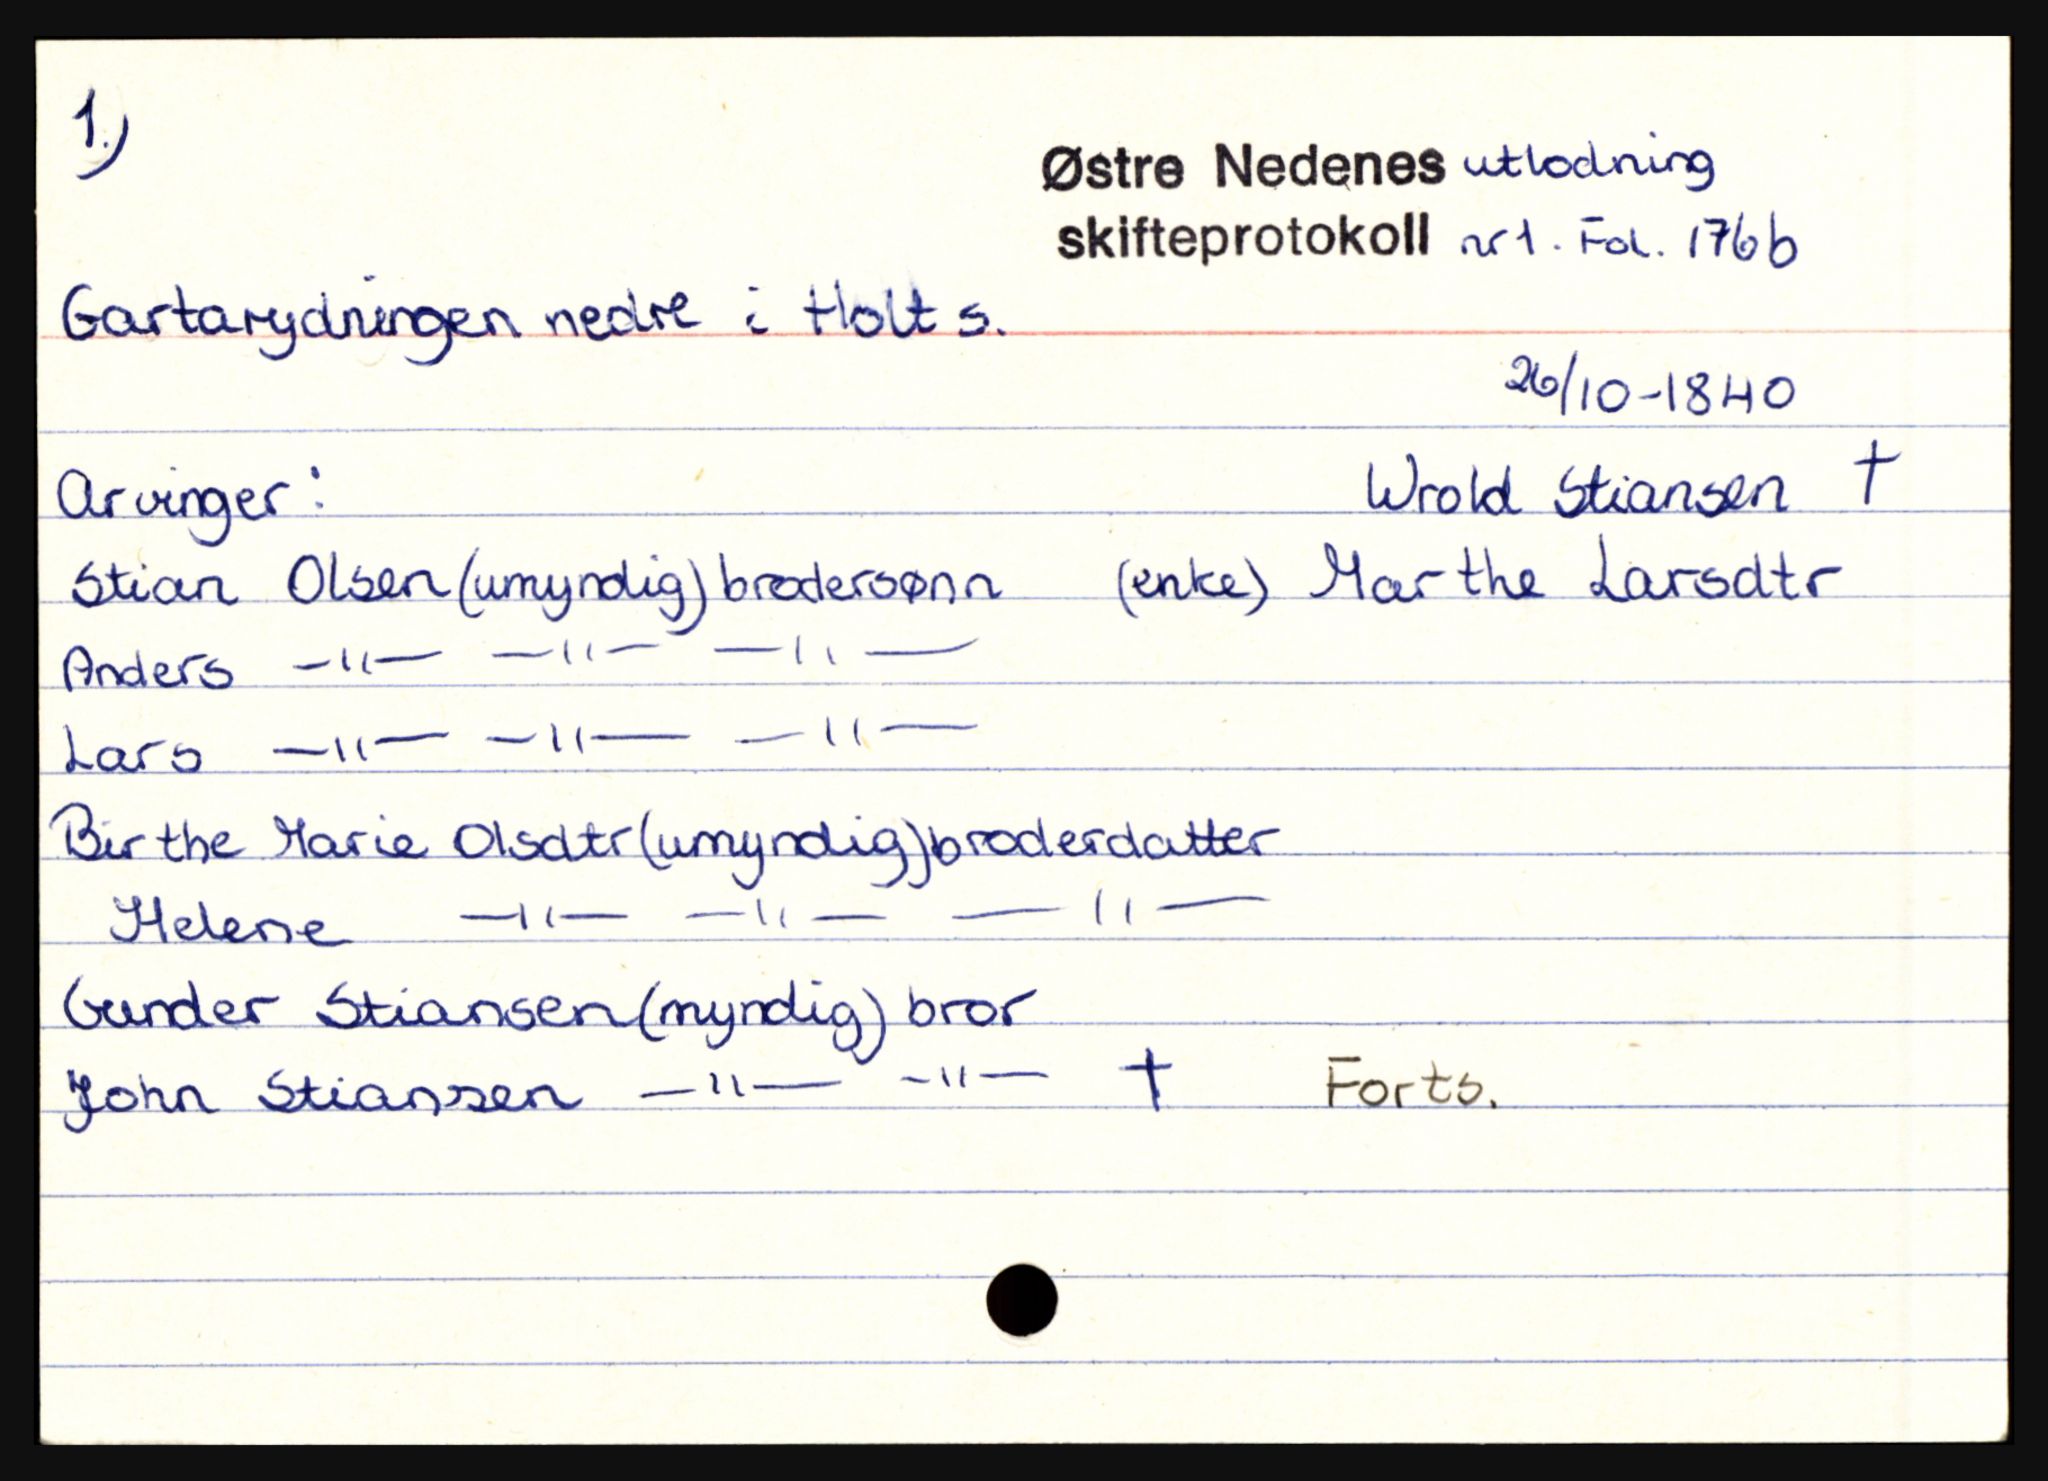 1.)
Østre Nedenes utlodning
skifteprotokoll nr 1. Fol. 176b
Gartarydningen nedre i Holt s.
26/10-1840
Arvinger: Wrold Stiansen †
Stian Olsen (umyndig) brodersønn (enke) Marthe Larsdtr
Anders —"— —"— —"—
Lars —"— —"— —"—
Birthe Marie Olsdtr (umyndig) broderdatter
Helene —"— —"— —"—
Gunder Stiansen (myndig) bror
John Stiansen —"— —"— † Forts.